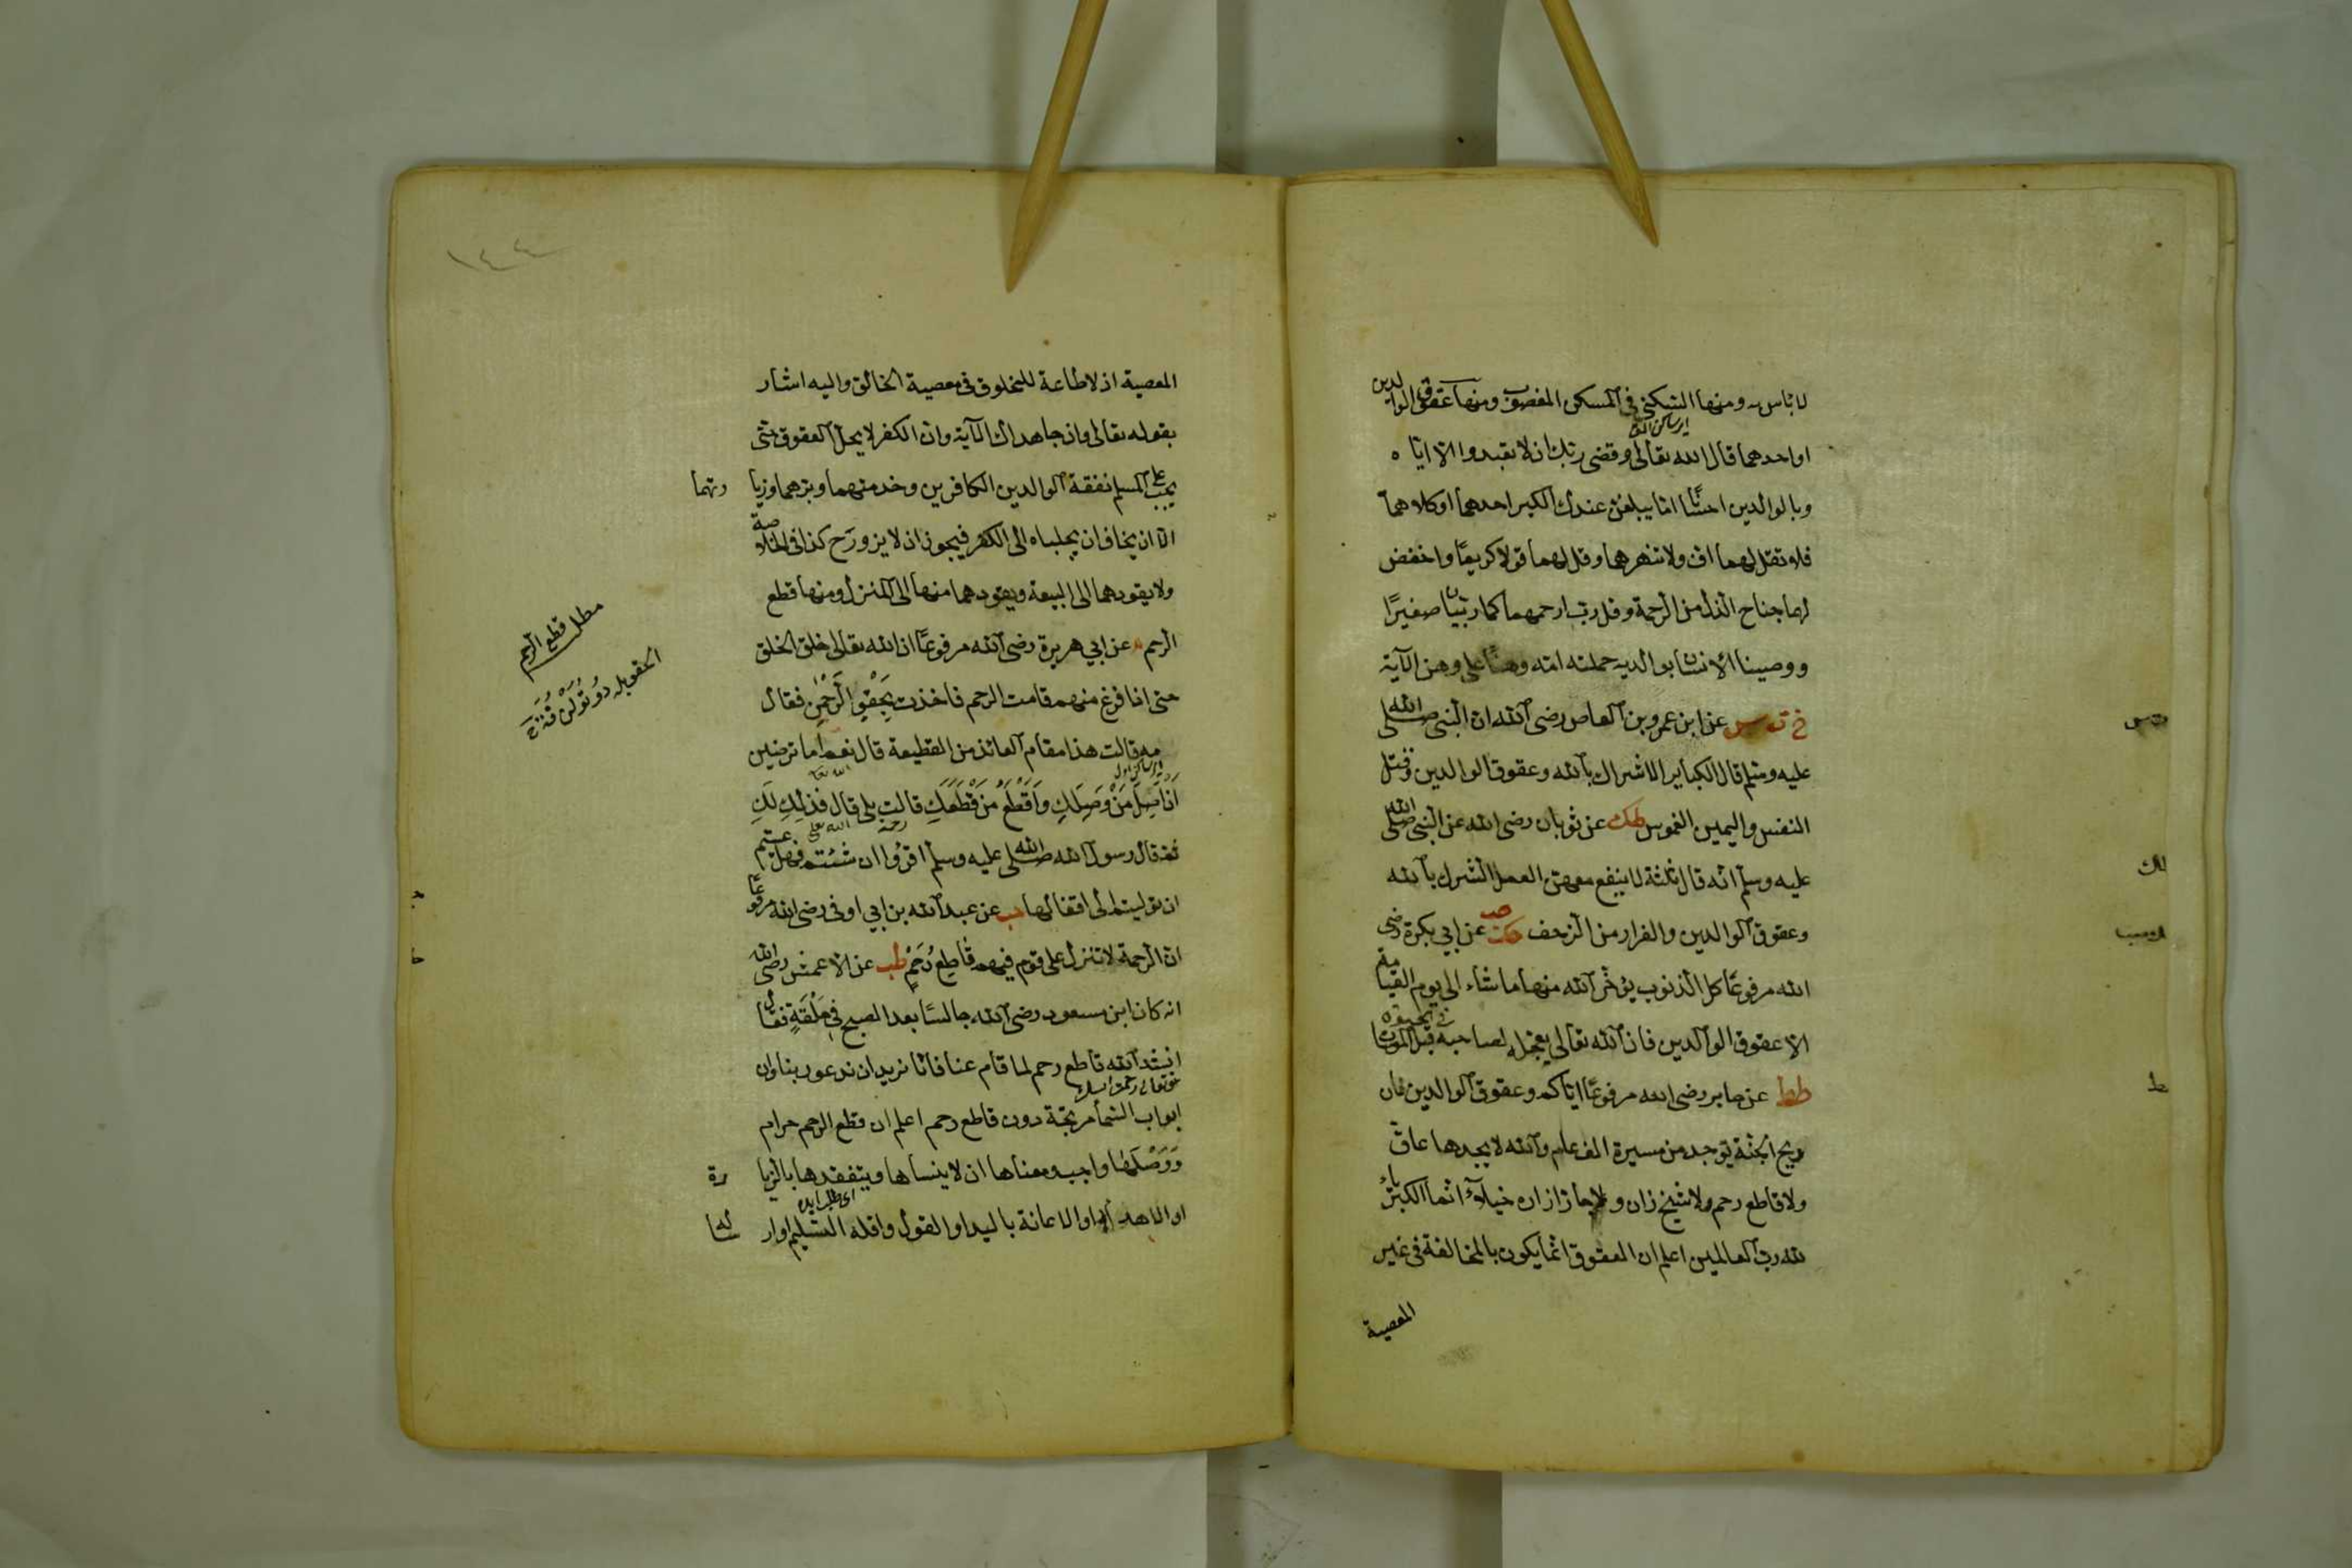 لا بأس به ومنها التسكين في المسكن المغصوب ومنها عقوق الوالدين
او احدهما قال الله تعالى وقضى ربك ان لا تعبدوا الا اياه
وبالوالدين احسانا اما يبلغن عندك الكبر احدهما او كلاهما
فلا تقل لهما اف ولا تنهرهما وقل لهما قولا كريما واخفض
لهما جناح الذل من الرحمة وقل رب ارحمهما كما ربياني صغيرا
ووصينا الانسان بوالديه حملته امه وهنا على وهن الآية
خ ت س عن ابن عمرو بن العاص رضى الله ان النبى صلى الله
عليه وسلم قال الكباير الاشراك بالله وعقوق الوالدين وقتل
النفس واليمين الغموس طك عن ثوبان رضى الله عن النبى صلى الله
عليه وسلم انه قال ثلثة لا ينفع معهن العمل الشرك بالله
وعقوق الوالدين والفرار من الزحف حك صب عن ابي بكرة رضى
الله مرفوعا كل الذنوب يؤخر الله منها ما شاء الى يوم القيامة
الا عقوق الوالدين فان الله تعالى يعجله لصاحبه في الحيوة قبل الموت
طط عن جابر رضى الله مرفوعا اياكم وعقوق الوالدين فان
ريح الجنة يوجد من مسيرة الف عام والله لا يجدها عاق
ولا قاطع رحم ولا شيخ زان ولا جار ازاره خيلاء انما الكبرياء
لله رب العالمين اعلم ان العقوق انما يكون بالمخالفة فى غير
المعصية
ط
١٤٤
المعصية اذ لا طاعة للمخلوق فى معصية الخالق واليه اشار
بقوله تعالى وان جاهداك الآية وان الكفر لا يحل العقوق حتى
يجب على المسلم نفقة الوالدين الكافرين وخدمتهما وبرهما وزيارتهما
الا ان يخاف ان يجلباه الى الكفر فيجوز ان لا يزور ح كذا فى الخلاصة
ولا يقودهما الى البيعة ويقودهما منها الى المنزل ومنها قطع
الرحم عن ابي هريرة رضى الله مرفوعا ان الله تعالى خلق الخلق
حتى اذا فرغ منهم قامت الرحم فاخذت بِحَقْوِ الرَّحْمٰنِ فقال
مه قالت هذا مقام العائذ من القطيعة قال نعم اما ترضين
اَنْ اَصِلَ مَنْ وَصَلَكِ وَاَقْطَعَ مَنْ قَطَعَكِ قالت بلى قال فذلك لَكِ
ثم قال رسول الله صلى الله عليه وسلم اقرؤا ان شئتم فهل عسيتم
ان توليتم الى اقفالها حب عن عبد الله بن ابي اوفى رضى الله مرفوعا
ان الرحمة لا تنزل على قوم فيهم قاطع رَحِمٍ طب عن الاعمش رضى الله
انه كان ابن مسعود رضى الله جالسا بعد الصبح فى حَلْقَةٍ فقال
انشد الله قاطع رحم لما قام عنا فانا نريد ان ندعو ربنا وان
ابواب السماء مرتجة دون قاطع رحم اعلم ان قطع الرحم حرام
وَوَصْلَهَا واجب ومعناها ان لا ينساها ويتفقدها بالزيارة
او الاهداء او الاعانة باليد او القول واقله التسليم او ارسالها
مطلب قطع الرحم